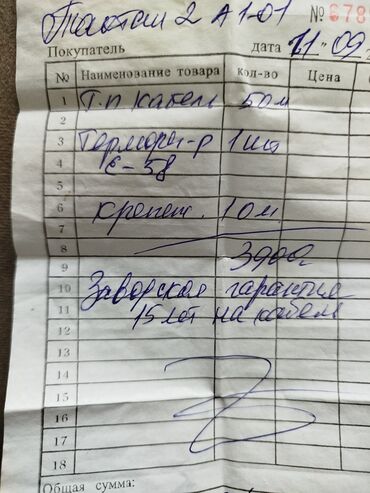 Таатан 2 А1-01 № 678
Покупатель дата 11-09
№ Наименование товара кол-во Цена
1 Т.п кабель 50м
2
3 Терморег-р 1 шт
4 Е-58
5
6 крепеж. 10м
7
8 3900
9
10 Заводская гарантия
11 15 лет на кабель
12
13
14
15
16
17
18
Общая сумма: